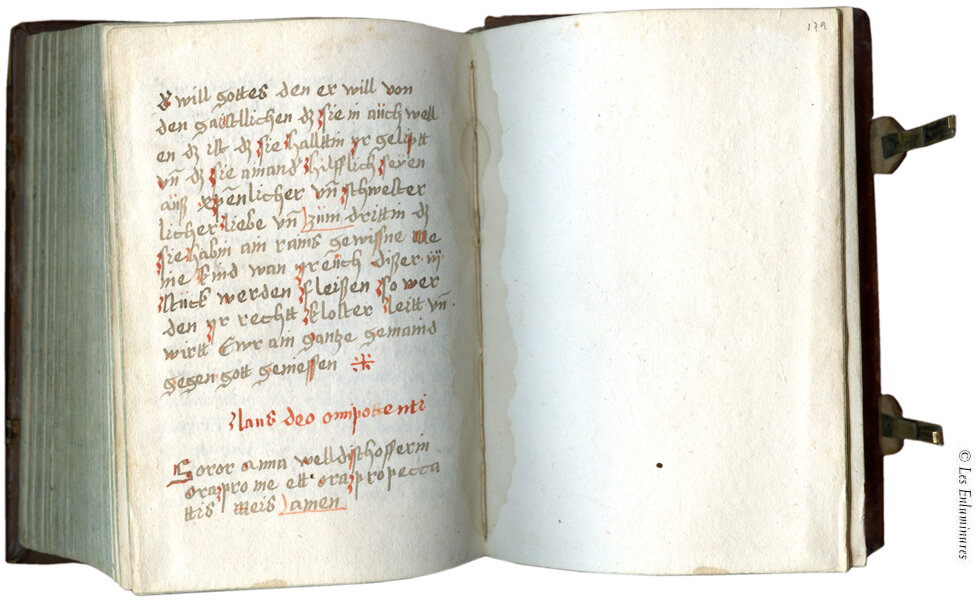 dz will gottes den er will von
den gaistlichen dz sie in aüch well
en dz ist dz sie halltin yr geliptt
vn̄ dz sie ainand hilfflich seyen
aüß xp̄enlicher vn̄ schwester
licher liebe vn̄ züm drittin dz
sie habin ain rains gewissne we
nie sind wan yr eüch dißer iij
stück werden fleißen so wer
den yr rechtt kloster leitt vn̄
wirtt Ewr ain gantze gemaind
gegen gott geniessen
laus deo omipottenti
Soror anna welldishofferin
ora pro me ett ora pro pecca
ttis meis amen
179
© Les Enluminures